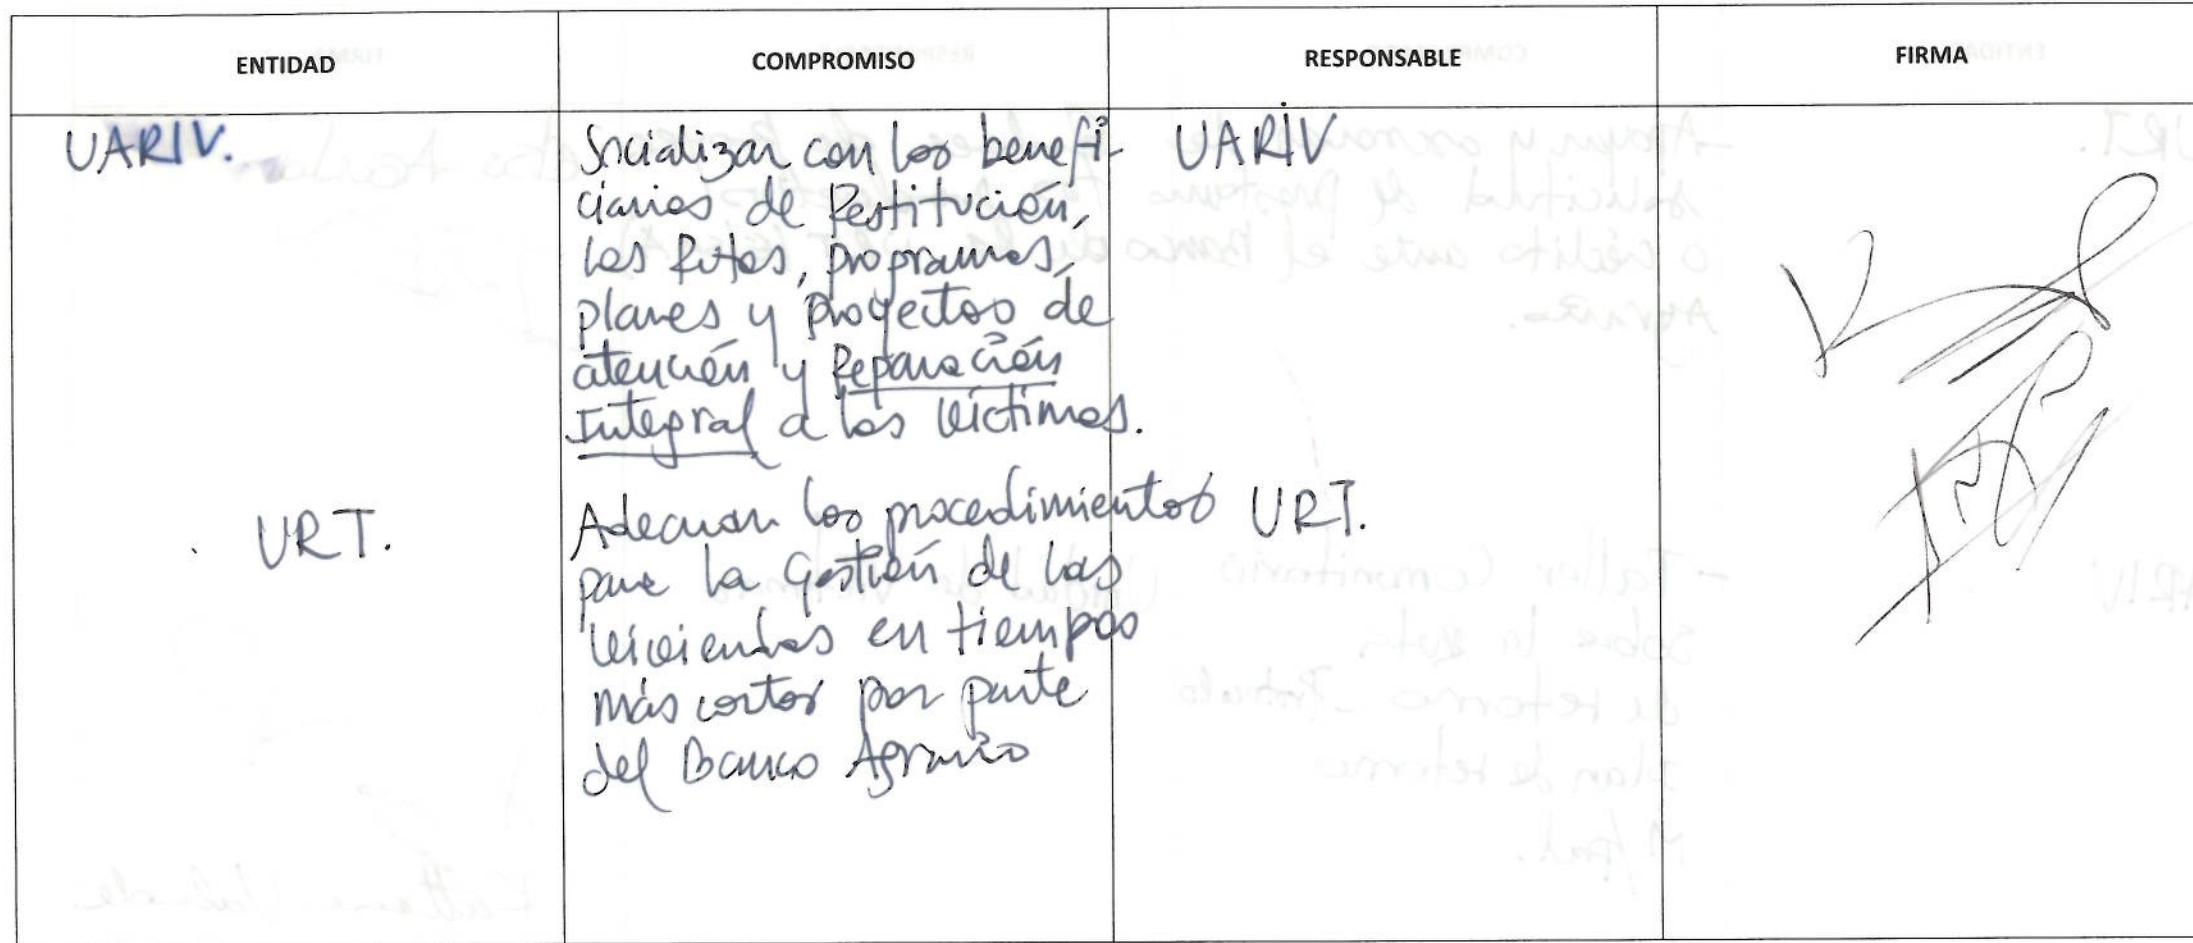 ENTIDAD COMPROMISO RESPONSABLE FIRMA
UARIV. Socializar con los benefi- UARIV
ciarios de Restitución,
las Rutas, programas,
planes y proyectos de
atención y Reparación
Integral a las víctimas.
URT. Adecuar los procedimientos URT.
para la Gestión de las
viviendas en tiempos
más cortos por parte
del Banco Agrario